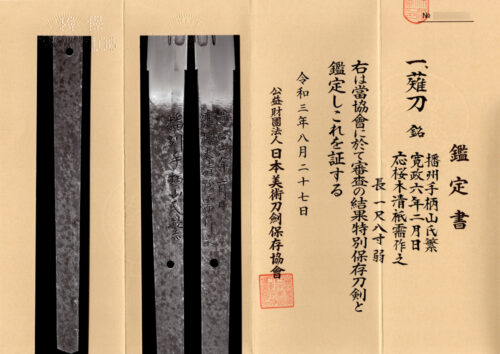 №
鑑定書
一、薙刀 銘
播州手柄山氏繁
寛政六年二月日
応桜木清祇需作之
長 一尺八寸 弱
右は當協會に於て審査の結果特別保存刀剣と
鑑定しこれを証する
令和三年八月二十七日
公益財團法人 日本美術刀劍保存協會